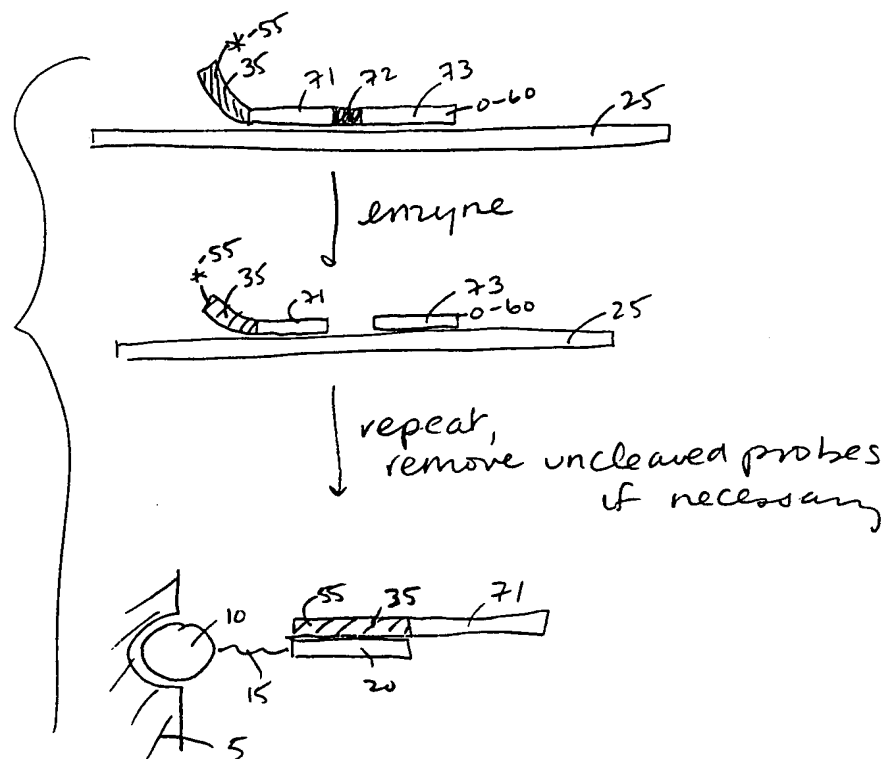 *-55
35 71 72 73
0-60
25
enzyme
*-55
35 71 73
0-60
25
repeat,
remove uncleaved probes
if necessary
55 35 71
10
15 20
5